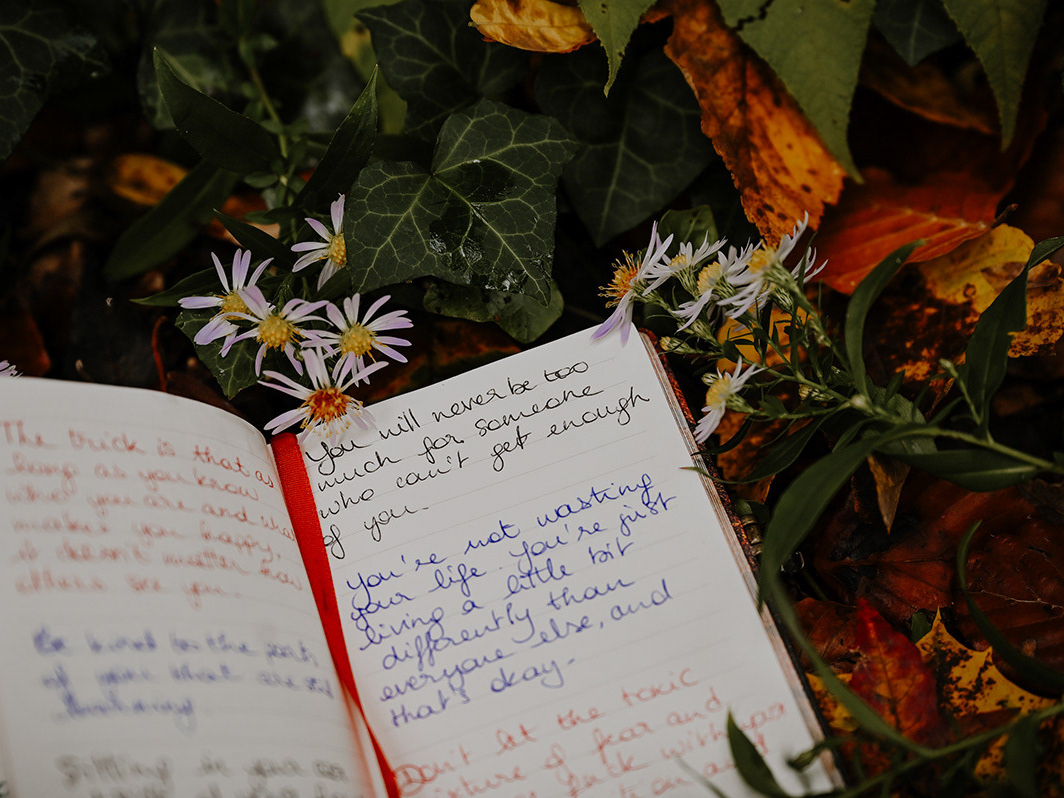 The trick is that as
long as you know
who you are and what
makes you happy,
it doesn't matter how
others see you.
Be kind to the parts
of you that are still
Sitting in your
You will never be too
much for someone
who can't get enough
of you.
You're not wasting
your life. You're just
living a little bit
differently than
everyone else, and
that's okay.
Don't let the toxic
mixture of fear and